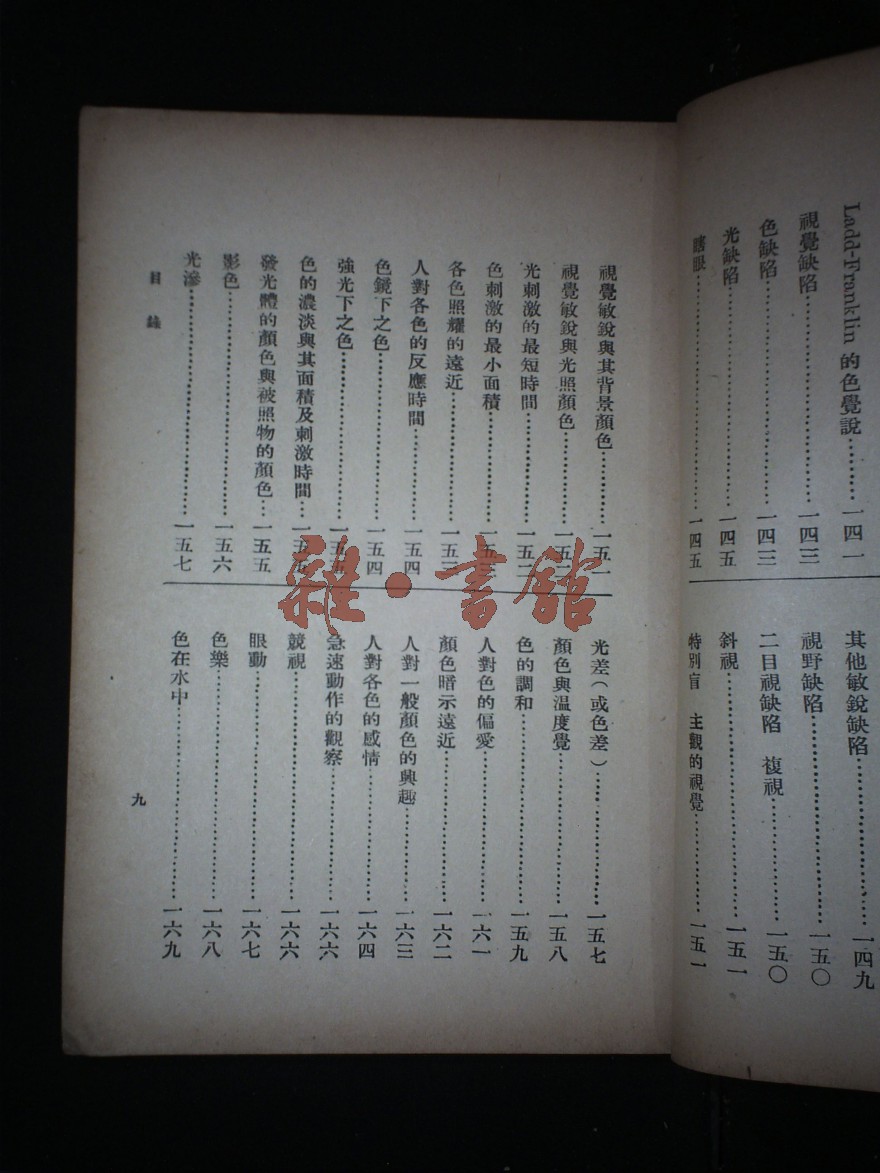 Ladd-Franklin 的色覺說………一四一
視覺缺陷………一四三
色缺陷………一四三
光缺陷………一四五
瞎眼………一四五
其他敏銳缺陷………一四九
視野缺陷………一五〇
二目視缺陷 複視………一五〇
斜視………一五一
特別盲 主觀的視覺………一五一
視覺敏銳與其背景顏色………一五一
視覺敏銳與光照顏色………一五二
光刺激的最短時間………一五二
色刺激的最小面積………一五三
各色照耀的遠近………一五三
人對各色的反應時間………一五四
色鏡下之色………一五四
強光下之色………一五五
色的濃淡與其面積及刺激時間…一五五
發光體的顏色與被照物的顏色…一五五
影色………一五六
光滲………一五七
光差(或色差)………一五七
顏色與温度覺………一五八
色的調和………一五九
人對色的偏愛………一六一
顏色暗示遠近………一六二
人對一般顏色的興趣………一六三
人對各色的感情………一六四
急速動作的觀察………一六六
競視………一六六
眼動………一六七
色樂………一六八
色在水中………一六九
目錄
九
雜·書館